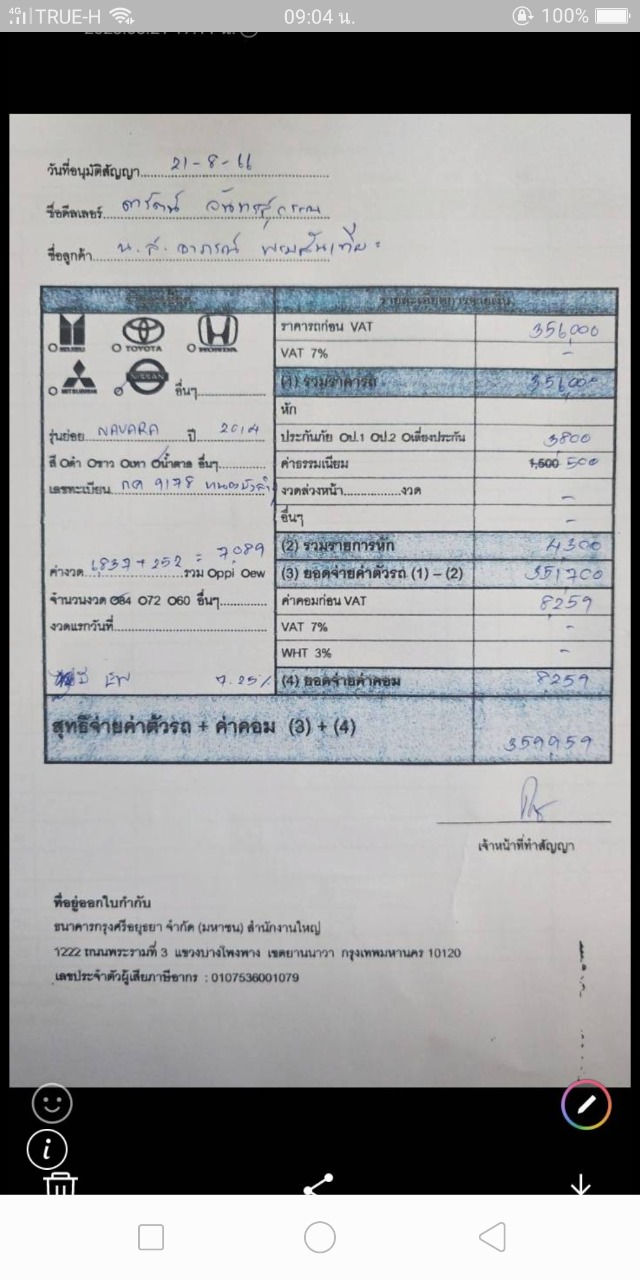 4G TRUE-H 09:04 น. 100%
วันที่อนุมัติสัญญา 21-8-66
ชื่อดีลเลอร์ ดารัตน์ จันทรสุวรรณ
ชื่อลูกค้า น.ส. อาภรณ์
รายละเอียดการจ่ายเงิน
ISUZU TOYOTA HONDA
MITSUBISHI NISSAN อื่นๆ
รุ่นย่อย NAVARA ปี 2014
สี Oดำ Oขาว Oเทา Oน้ำตาล อื่นๆ
เลขทะเบียน กค 9178 หนองบัวลำ
ค่างวด 6837 + 252 = 7,089 รวม Oppi Oew
จำนวนงวด O84 O72 O60 อื่นๆ
งวดแรกวันที่
7.25%
ราคารถก่อน VAT 356,000
VAT 7% -
(1) รวมราคารถ 356000
หัก
ประกันภัย Oป.1 Oป.2 Oเลี่ยงประกัน 3800
ค่าธรรมเนียม 1,500 500
งวดล่วงหน้า งวด -
อื่นๆ -
(2) รวมรายการหัก 4,300
(3) ยอดจ่ายค่าตัวรถ (1) – (2) 351,700
ค่าคอมก่อน VAT 8259
VAT 7% -
WHT 3% -
(4) ยอดจ่ายค่าคอม 8259
สุทธิจ่ายค่าตัวรถ + ค่าคอม (3) + (4) 359,959
เจ้าหน้าที่ทำสัญญา
ที่อยู่ออกใบกำกับ
ธนาคารกรุงศรีอยุธยา จำกัด (มหาชน) สำนักงานใหญ่
1222 ถนนพระรามที่ 3 แขวงบางโพงพาง เขตยานนาวา กรุงเทพมหานคร 10120
เลขประจำตัวผู้เสียภาษีอากร : 0107536001079